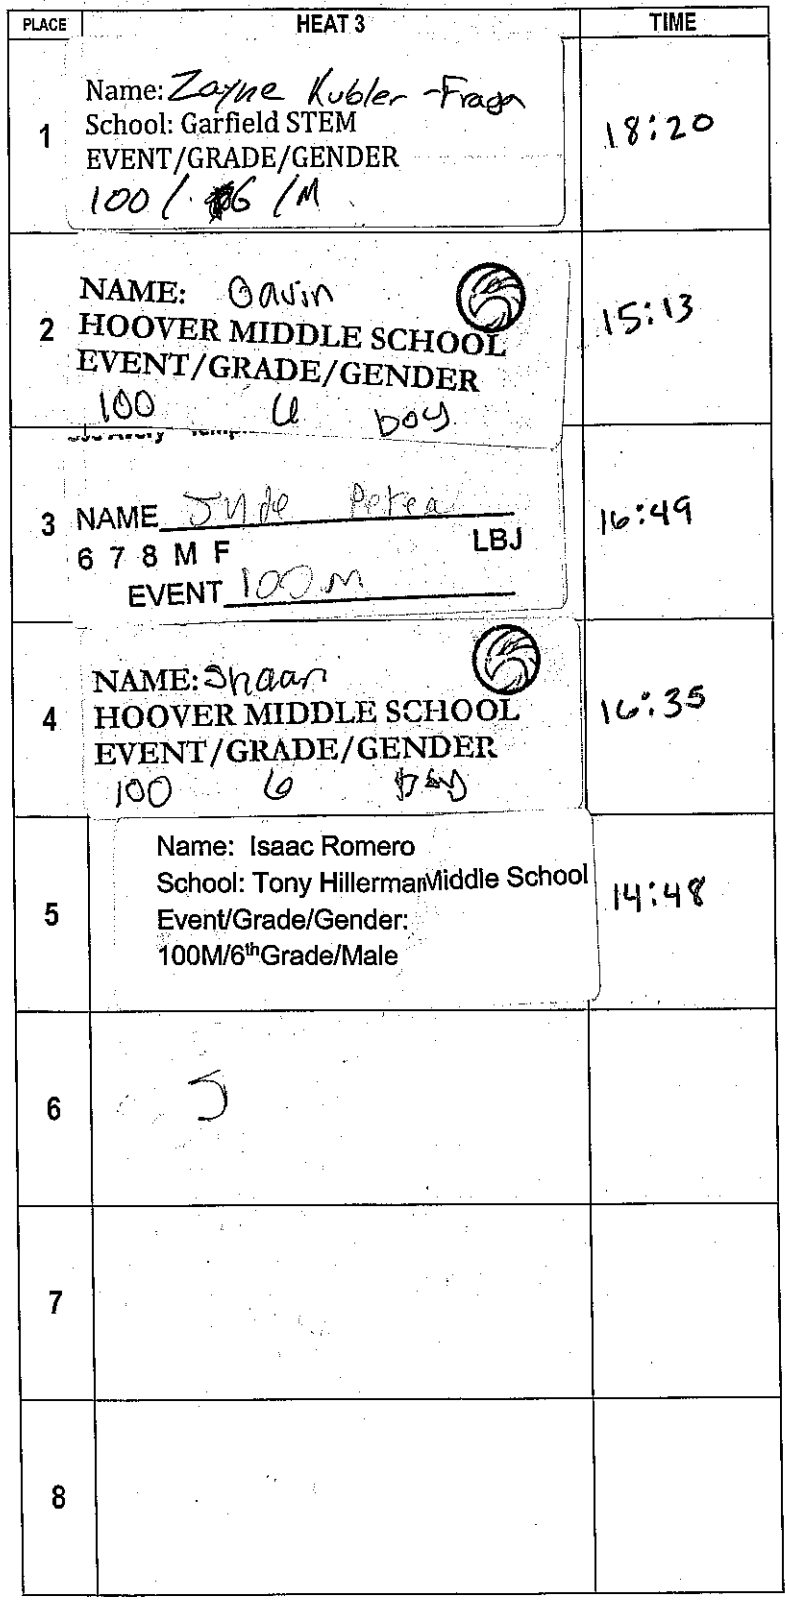 PLACE HEAT 3 TIME
1
Name: Zayne Kubler-Fraga
School: Garfield STEM
EVENT/GRADE/GENDER
100 / 6 / M
18:20
2
NAME: Gavin
HOOVER MIDDLE SCHOOL
EVENT/GRADE/GENDER
100 6 boy
15:13
3
NAME Jude Perea
6 7 8 M F LBJ
EVENT 100 M
16:49
4
NAME: Shaan
HOOVER MIDDLE SCHOOL
EVENT/GRADE/GENDER
100 6 boy
16:35
5
Name: Isaac Romero
School: Tony Hillerman Middle School
Event/Grade/Gender:
100M/6th Grade/Male
14:48
6
5
7
8